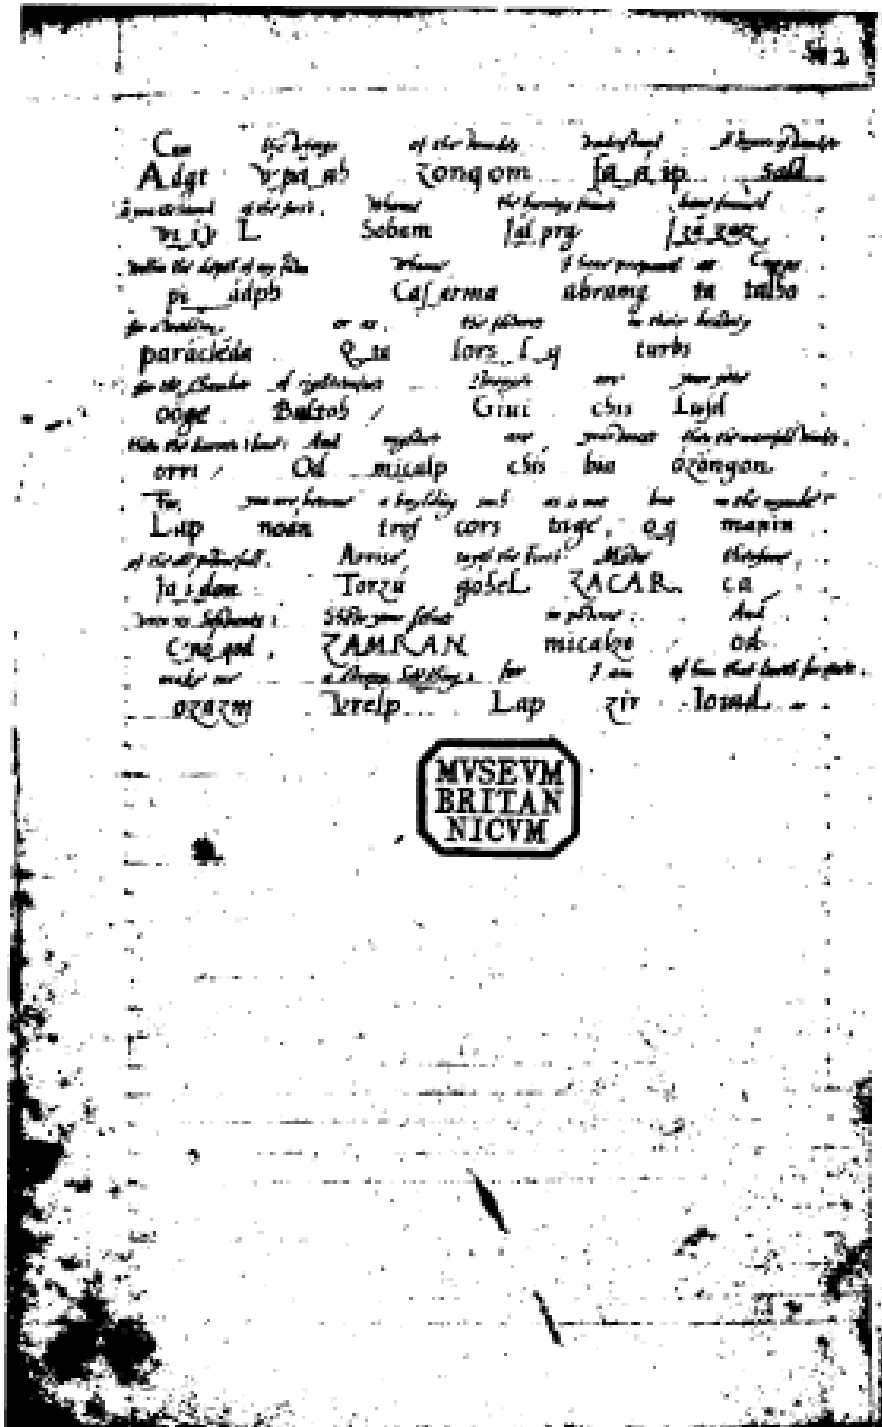 Can the wings of the windes understand
Adgt vpa_ah zongom fa_a_ip sald
vi_iv L Sobam Ial_prg Iza_zaz
within the depth of my Whome I have prepared as Cupps
pi_adph Casarma abramg ta talho
for a wedding or as the flowres in their beawty
paracleda Q_ta lors_l_q turbs
for the Chamber of Stronger are your fete
ooge Baltoh / Giui chis Lusd
then the barren stone And mightier are your voices then the manifold windes
orri / Od micalp chis bia ozongon
For you are become a buylding such as is not but in the mynde
Lap noan trof cors tage, o_q manin
of the all powrefull. Arrise sayth the First Move therfore
Ia_i_don Torzu gohel ZACAR ca
vnto his Servants: Shew your selves in powre: And
C_no_qod, ZAMRAN micalzo / od
make me a strong Seething: for I am of him that liveth for ever.
ozazm Vrelp Lap zir Ioiad
MVSEVM
BRITAN
NICVM